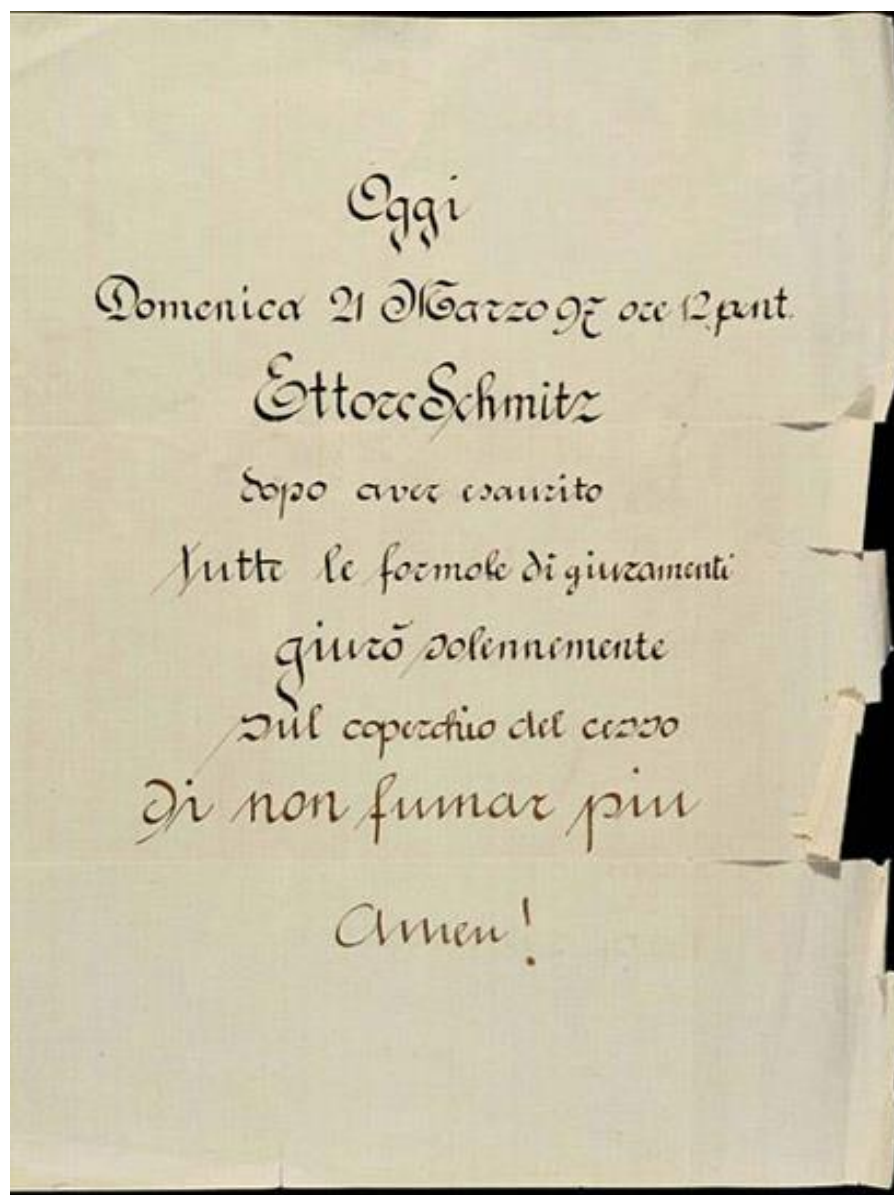 Oggi
Domenica 21 Marzo 97 ore 12 pont.
Ettore Schmitz
dopo aver esaurito
tutte le formole di giuramenti
giurò solennemente
sul coperchio del cesso
di non fumar piu
Amen!